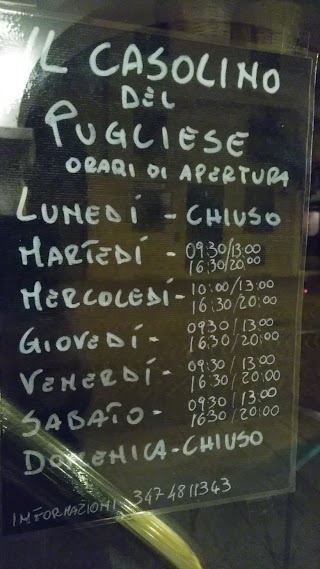 IL CASOLINO
DEL
PUGLIESE
ORARI DI APERTURA
LUNEDÍ - CHIUSO
MARTEDÍ - 09:30/13:00
16:30/20:00
MERCOLEDÍ - 10:00/13:00
16:30/20:00
GIOVEDÍ - 09:30/13:00
16:30/20:00
VENERDÍ - 09:30/13:00
16:30/20:00
SABATO - 09:30/13:00
16:30/20:00
DOMENICA - CHIUSO
INFORMAZIONI 347 4811343